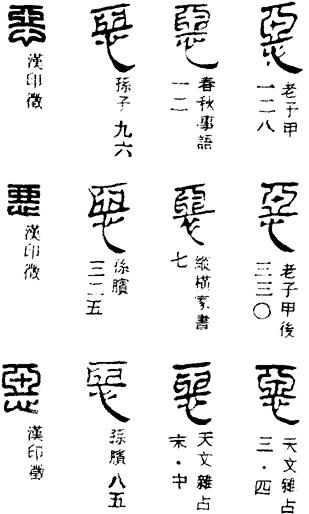 惡
老子甲
一二八
惡
老子甲後
三三〇
惡
天文雜占
三・四
惡
春秋事語
一二
惡
縱橫家書
七
惡
天文雜占
末・中
惡
孫子九六
惡
孫臏
三二五
惡
孫臏八五
惡
漢印徵
惡
漢印徵
惡
漢印徵